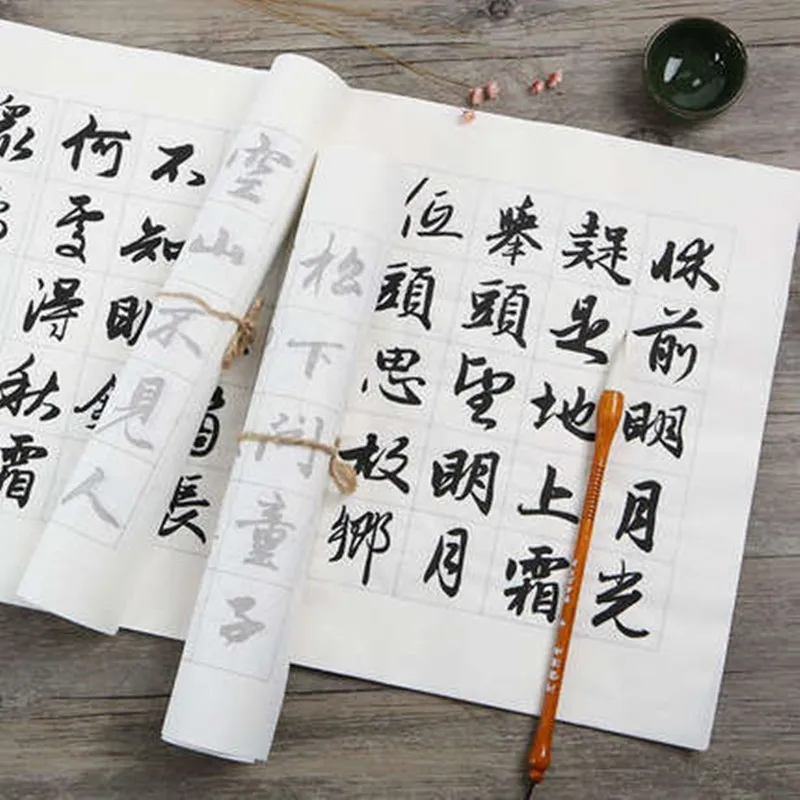 牀前明月光
疑是地上霜
舉頭望明月
低頭思故鄉
松下问童子
空山不見人
長
不知明
何處得秋霜
眾